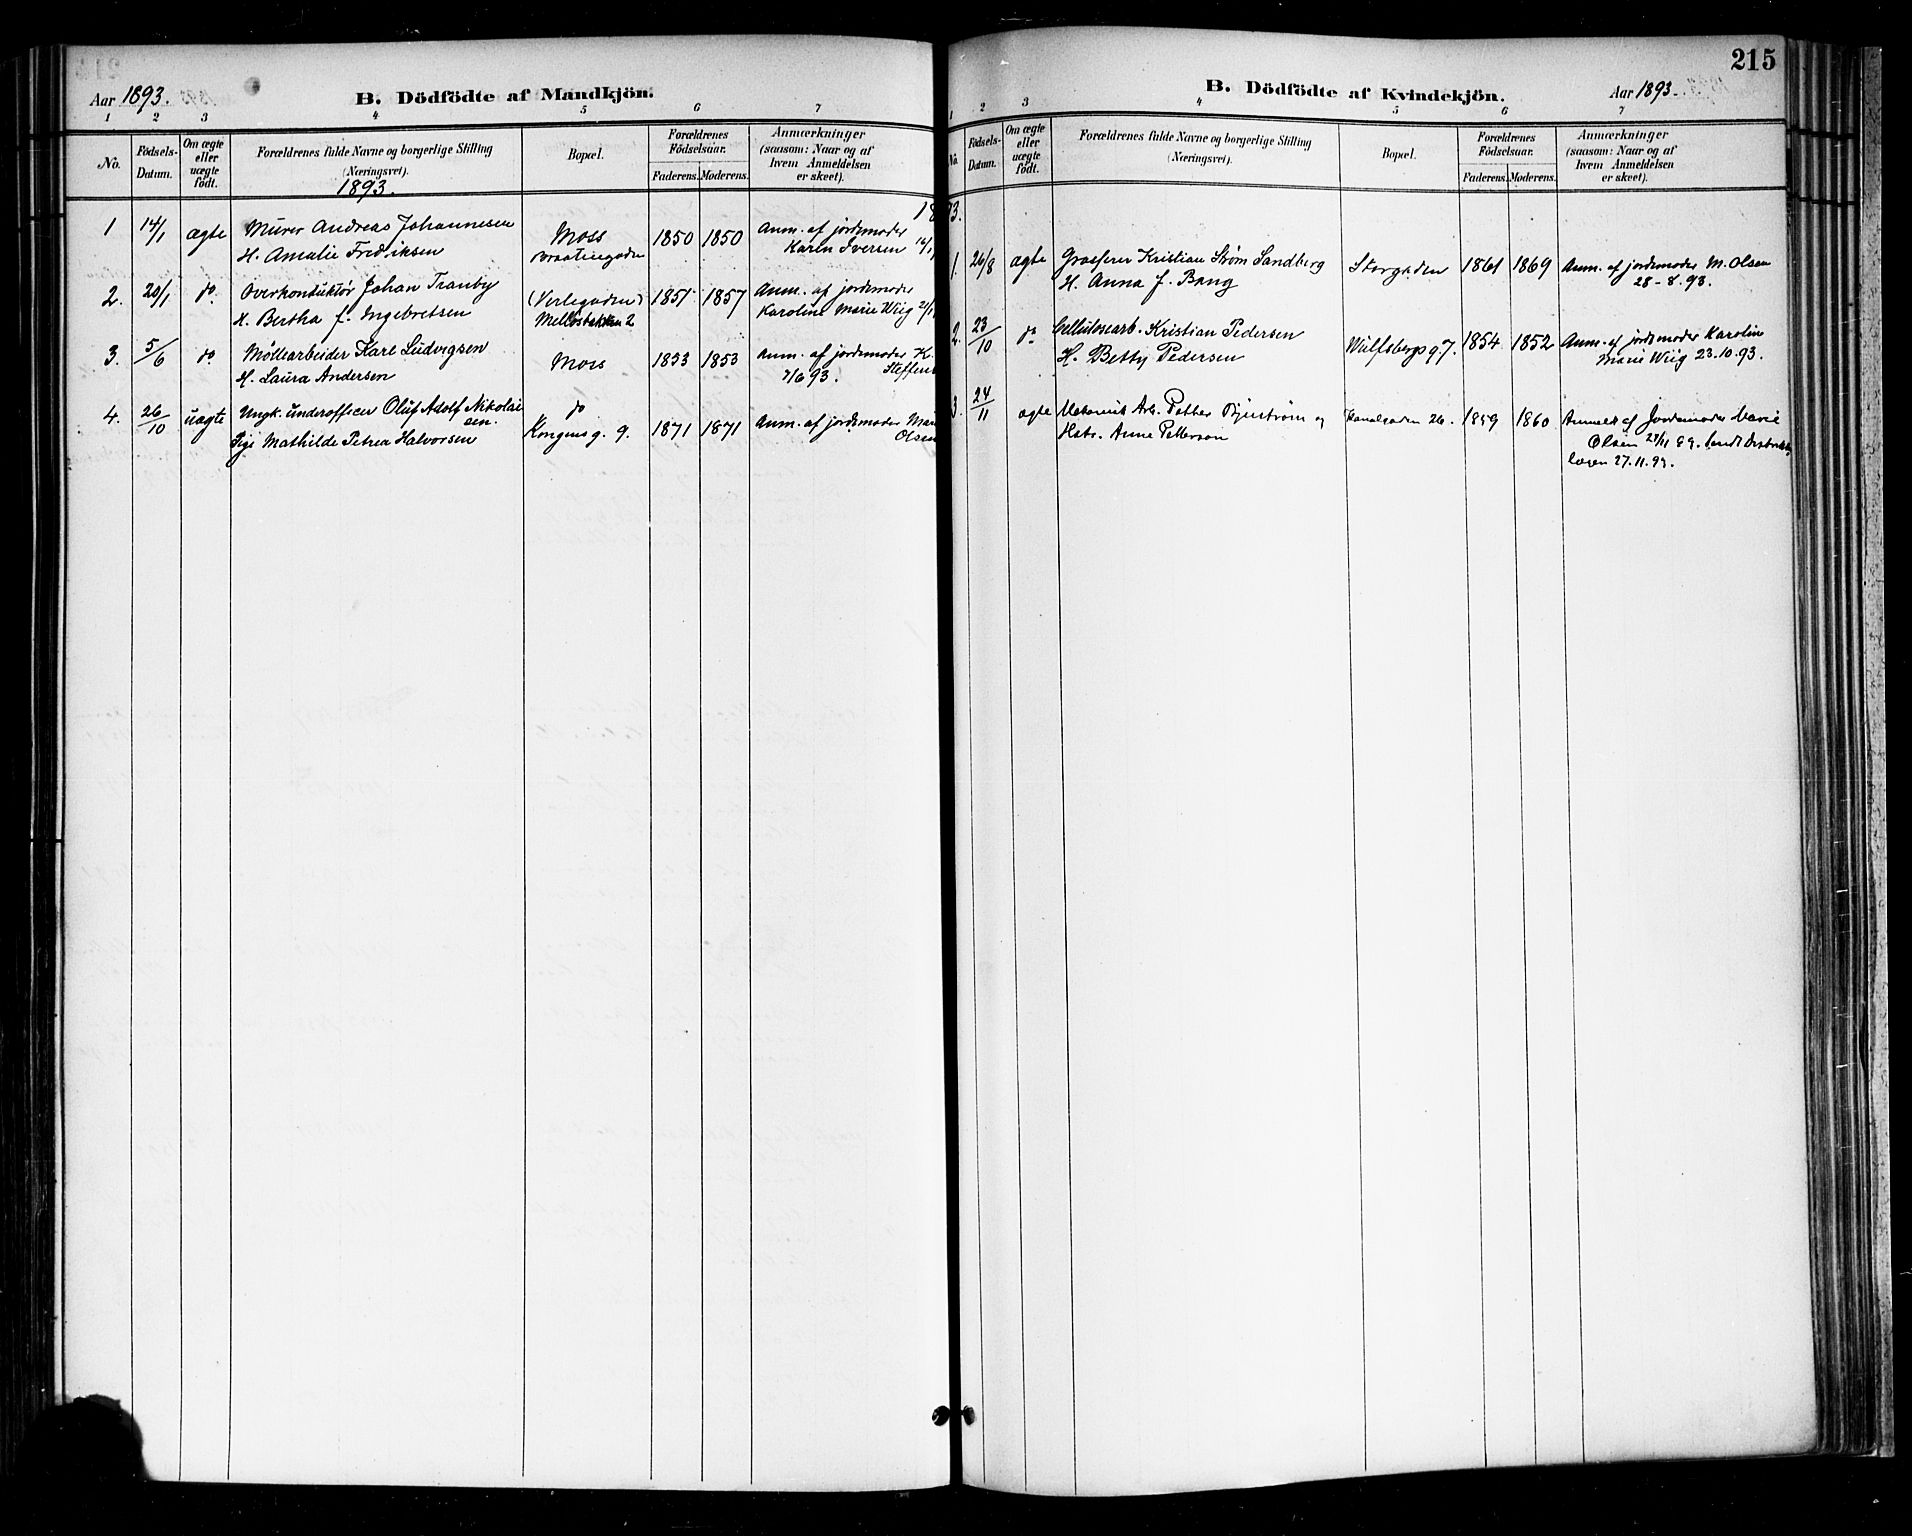 Aar 1893.
B. Dödfödte af Mandkjön.
1 2 3 4 5 6 7
No.
Födsels-Datum.
Om ægte eller uægte födt.
Forældrenes fulde Navne og borgerlige Stilling
(Næringsvei).
Bopæl.
Forældrenes Födselsaar.
Faderens. Moderens.
Anmærkninger
(saasom: Naar og af hvem Anmeldelsen er skeet).
1893.
1 14/1 ægte Murer Andreas Johannesen Moss 1850 1850 Anm. af jordmoder
H. Amalie Fredriksen Braatengaden Karen Iversen
2. 20/1 do. Overkonduktør Johan Tranby (Verlegaden) 1851 1857 Anm. af jordmoder
H. Bertha f. Ingebretsen Melløsbakken 2 Karoline Marie Wiig 21/1
3. 5/6 do Møllearbeider Karl Ludvigsen Moss 1853 1853 Anm. af jordemoder K.
H. Laura Andersen 7/6 93. Steffens
4. 26/10 uægte Ungk. underofficer Oluf Adolf Nikolai
sen. do
Pige Mathilde Petrea Halvorsen Kongensg. 9. 1871 1871 Anm. af jordemoder
Olsen
215
B. Dödfödte af Kvindekjön.
Aar 1893.
1 2 3 4 5 6 7
No.
Födsels-Datum.
Om ægte eller uægte födt.
Forældrenes fulde Navne og borgerlige Stilling
(Næringsvei).
Bopæl.
Forældrenes Födselsaar.
Faderens. Moderens.
Anmærkninger
(saasom: Naar og af hvem Anmeldelsen er skeet).
1893.
1. 26/8 ægte Grosserer Kristian Strøm Sandberg Storgaden 1861 1869 Anm. af jordemoder M. Olsen
H. Anna f. Bang 28-8.93.
2. 23/10 do Cellulosearb. Kristian Pedersen
H. Betty Pedersen Wulfsbergs g. 7. 1854 1852 Anm. af jordemoder Karoline
Marie Wiig 23.10.93.
3. 24/11 ægte Arb. Petter og Kanalgaden 26. 1859 1860 Anmeldt af Jordemoder Marie
Hstr. Anne Petterson Olsen
lægen 27.11.93.